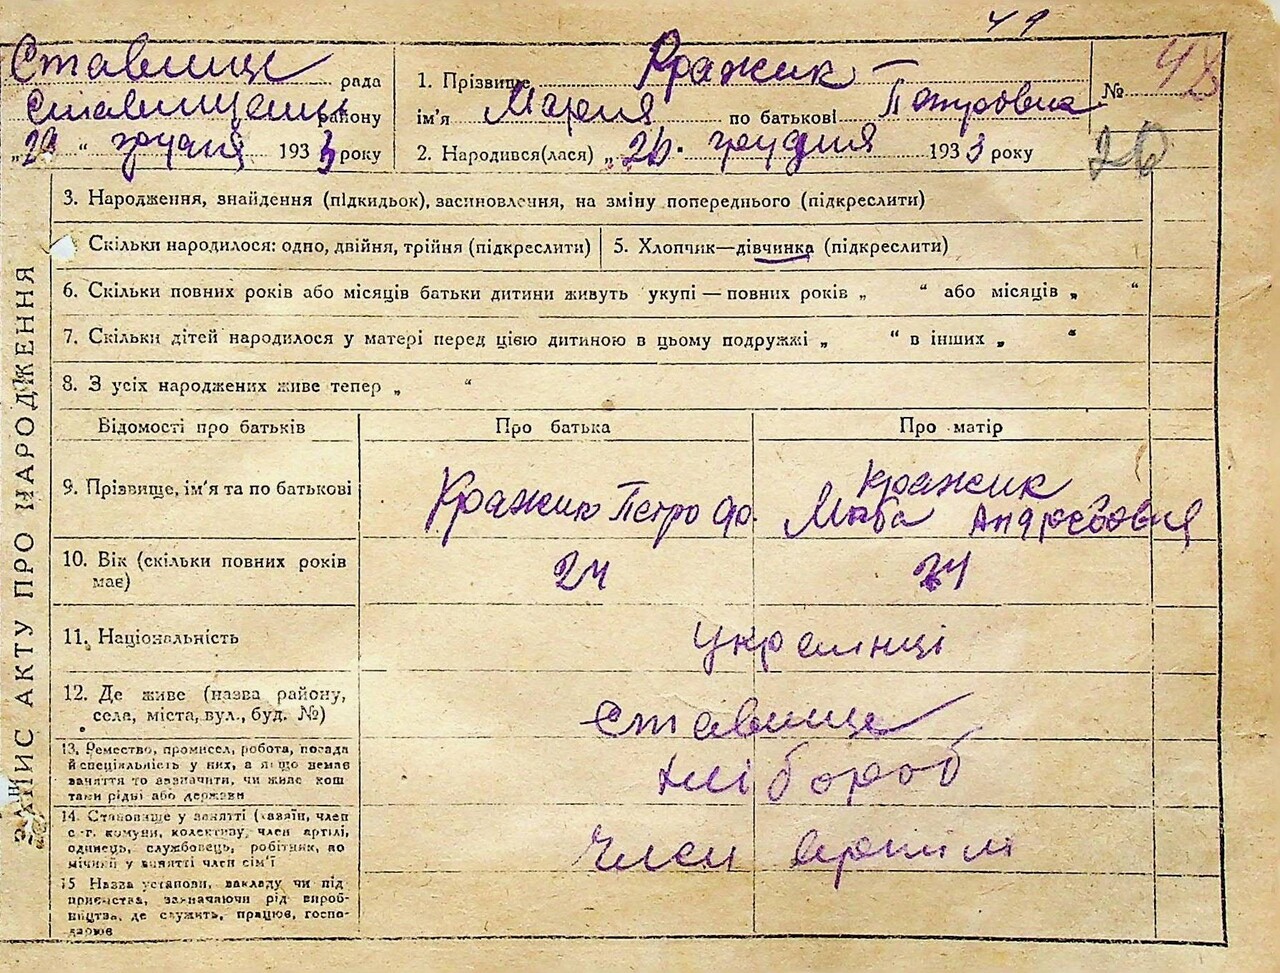 49
Ставище рада
Ставищенськ. району
„29 “ грудня 1933 року
1. Прізвище Кражик
ім'я Мария по батькові Петровна
2. Народився(лася) „26. грудня 1933 року
№ 48
26
3. Народження, знайдення (підкидьок), засиновлення, на зміну попереднього (підкреслити)
Скільки народилося: одно, двійня, трійня (підкреслити)
5. Хлопчик—дівчинка (підкреслити)
6. Скільки повних років або місяців батьки дитини живуть укупі — повних років „ “ або місяців „ “
7. Скільки дітей народилося у матері перед цією дитиною в цьому подружжі „ “ в інших „ “
8. З усіх народжених живе тепер „ “
ЗАПИС АКТУ ПРО НАРОДЖЕННЯ
Відомості про батьків Про батька Про матір
9. Прізвище, ім'я та по батькові
Кражик Петро Фр.
Кражик
Андрєєвовна
10. Вік (скільки повних років
має)
24 24
11. Національність
українці
12. Де живе (назва району,
села, міста, вул., буд. №)
Ставище
13. Ремество, промисел, робота, посада
й спеціяльність у них, а якщо немає
заняття то зазначити, чи живе кош
тами рідні або держави
хлібороб
14. Становище у занятті (хазяїн, член
с.-г. комуни, колективу, член артілі,
одинець, службовець, робітник, до
мічний у занятті член сім'ї
Член артілі
15 Назва установи, закладу чи під
приємства, зазначаючи рід вироб-
ництва, де служить, працює, госпо-
дарює